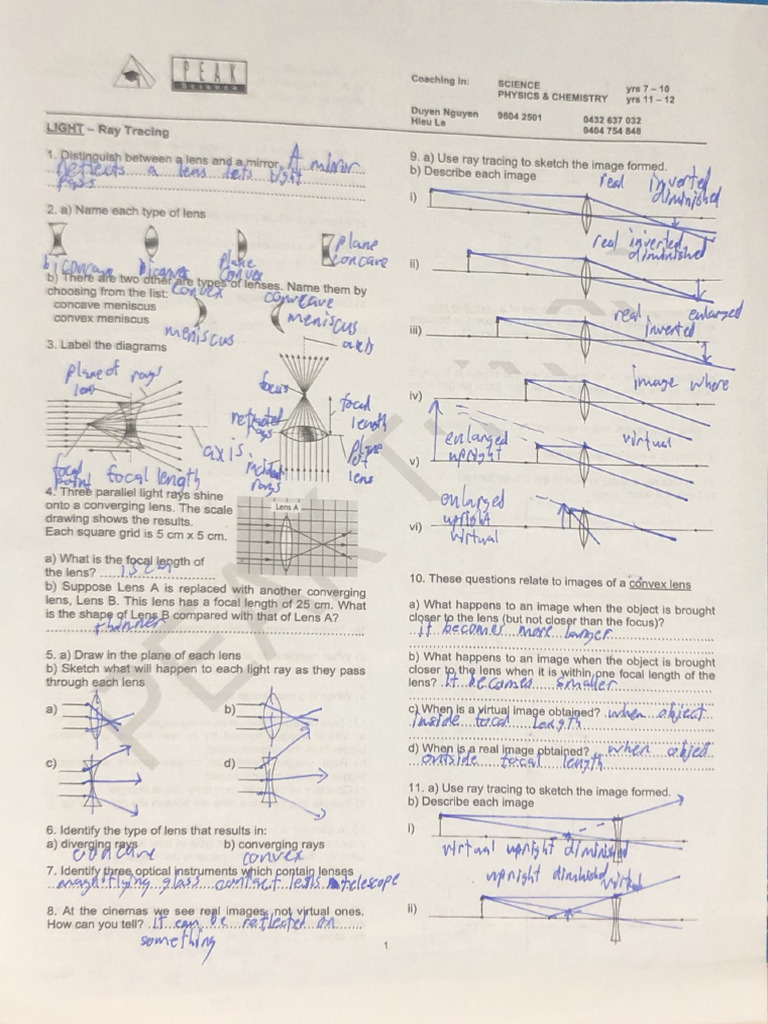 PEAK
Science
Coaching in: SCIENCE yrs 7 – 10
PHYSICS & CHEMISTRY yrs 11 – 12
Duyen Nguyen 9604 2501 0432 637 032
Hieu Le 0404 754 848
LIGHT – Ray Tracing
1. Distinguish between a lens and a mirror. A mirror
reflects a lens lets light
pass
2. a) Name each type of lens
biconcave biconvex plane convex plane concave
b) There are two other are types of lenses. Name them by
choosing from the list:
concave meniscus
convex meniscus
convex meniscus
concave meniscus
3. Label the diagrams
plane of lens
rays
axis
focal point
focal length
axis
focus
refracted rays
focal length
incident rays
plane of lens
4. Three parallel light rays shine
onto a converging lens. The scale
drawing shows the results.
Each square grid is 5 cm x 5 cm.
Lens A
a) What is the focal length of
the lens? 15 cm
b) Suppose Lens A is replaced with another converging
lens, Lens B. This lens has a focal length of 25 cm. What
is the shape of Lens B compared with that of Lens A?
thinner
5. a) Draw in the plane of each lens
b) Sketch what will happen to each light ray as they pass
through each lens
a) b)
c) d)
6. Identify the type of lens that results in:
a) diverging rays b) converging rays
concave convex
7. Identify three optical instruments which contain lenses
magnifying glass contact lens telescope
8. At the cinemas we see real images, not virtual ones.
How can you tell? it can be reflected on
something
9. a) Use ray tracing to sketch the image formed.
b) Describe each image
i) real inverted
diminished
ii) real inverted
diminished
iii) real inverted enlarged
iv) image where
v) enlarged upright virtual
vi) enlarged
upright
virtual
10. These questions relate to images of a convex lens
a) What happens to an image when the object is brought
closer to the lens (but not closer than the focus)?
it becomes more larger
b) What happens to an image when the object is brought
closer to the lens when it is within one focal length of the
lens? It becomes smaller
c) When is a virtual image obtained? when object
inside focal length
d) When is a real image obtained? when object
outside focal length
11. a) Use ray tracing to sketch the image formed.
b) Describe each image
i)
virtual upright diminished
upright diminished virtual
ii)
1